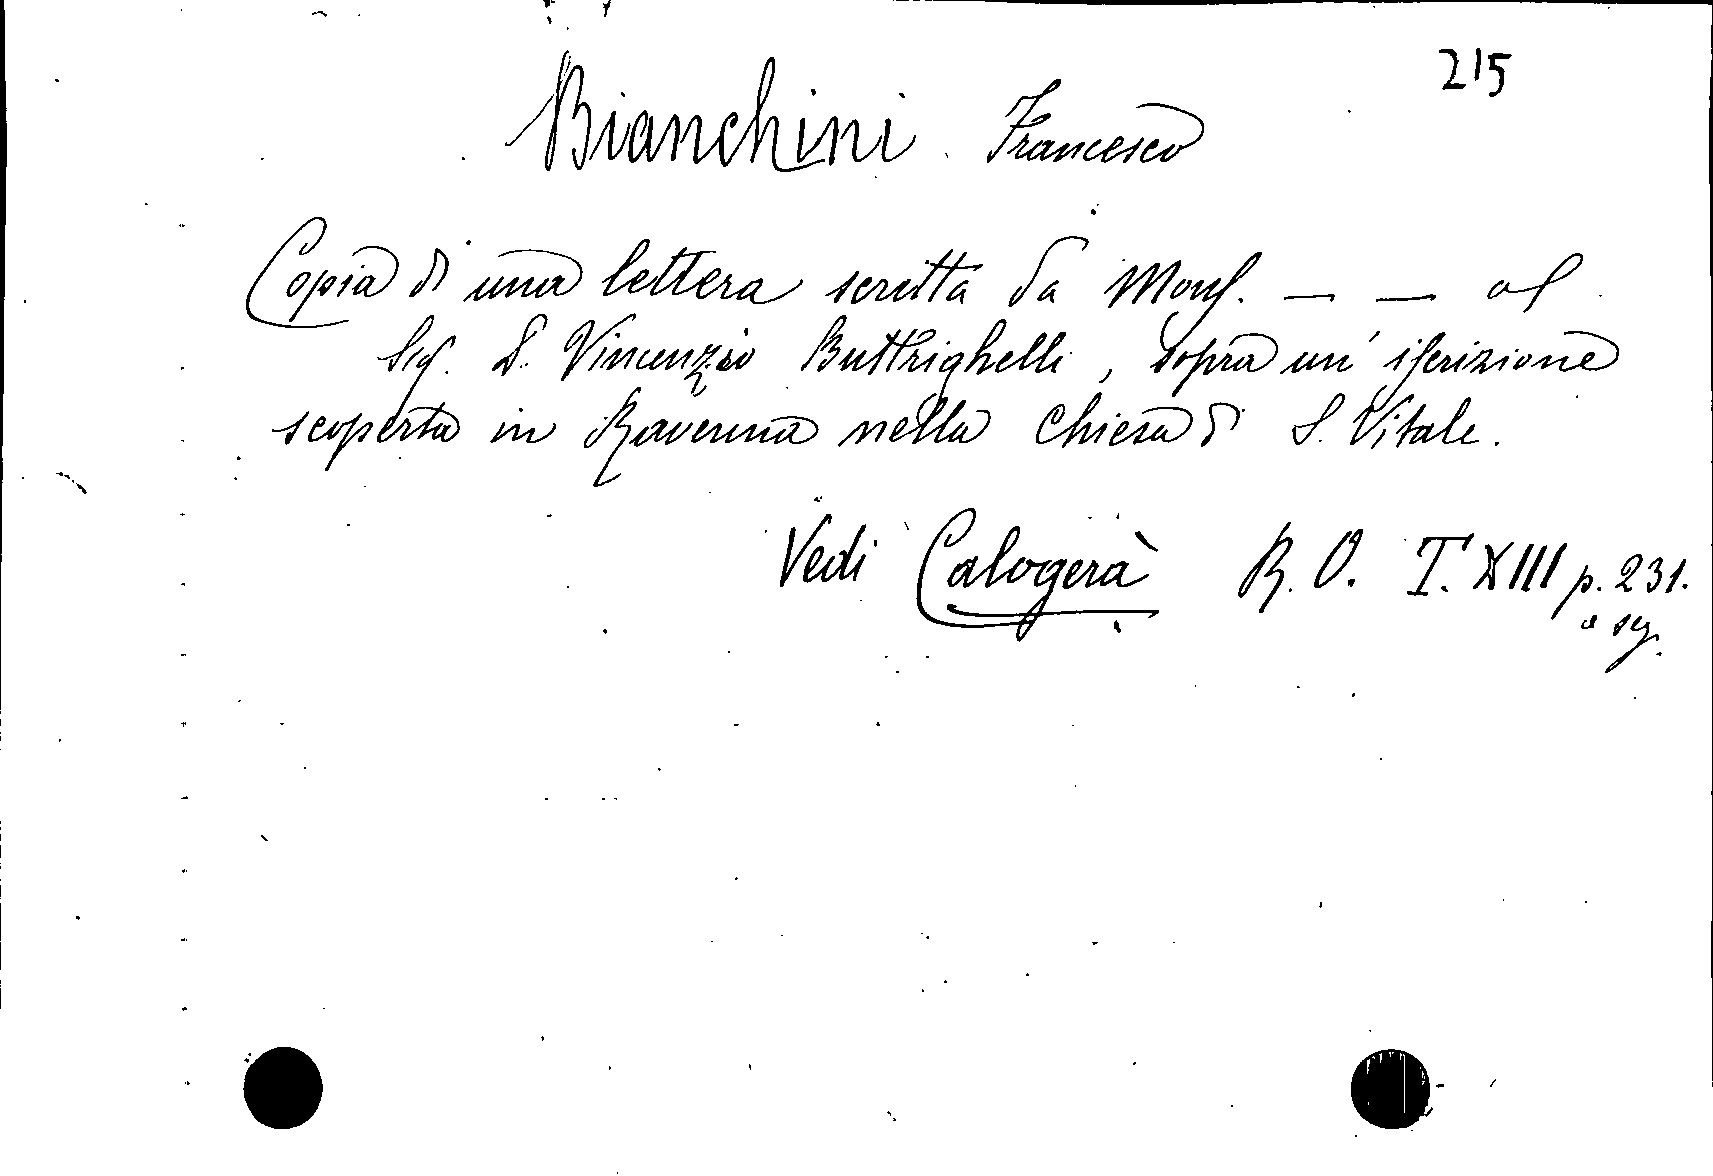 215
Bianchini Francesco
Copia di una lettera scritta da Mons. — — al
Sig. D. Vincenzio Buttrighelli, sopra un' iscrizione
scoperta in Ravenna nella Chiesa di S. Vitale.
Vedi Calogerà R. O. T. XIII p. 231.
e seg.